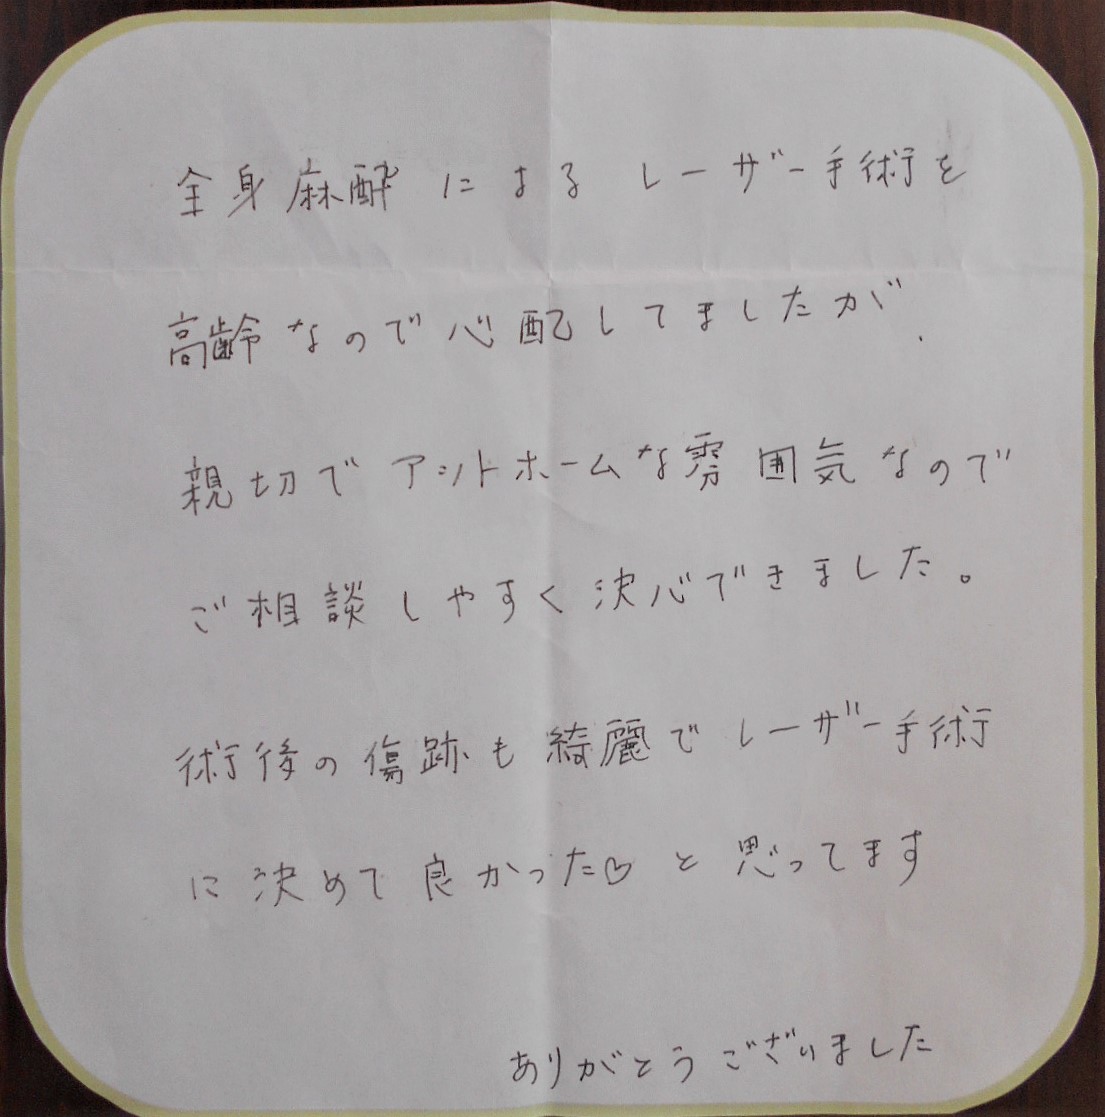 全身麻酔による レーザー手術を
高齢なので心配してましたが、
親切でアットホームな雰囲気なので
ご相談しやすく決心できました。
術後の傷跡も綺麗でレーザー手術
に決めて良かった♡と思ってます
ありがとうございました